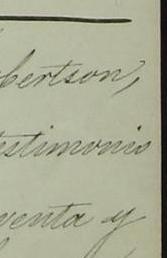 bertson,
testimonio
venta y